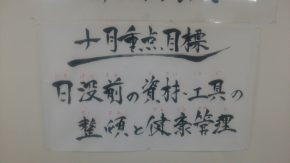 十月重点目標
日没前の資材、工具の
整頓と健康管理